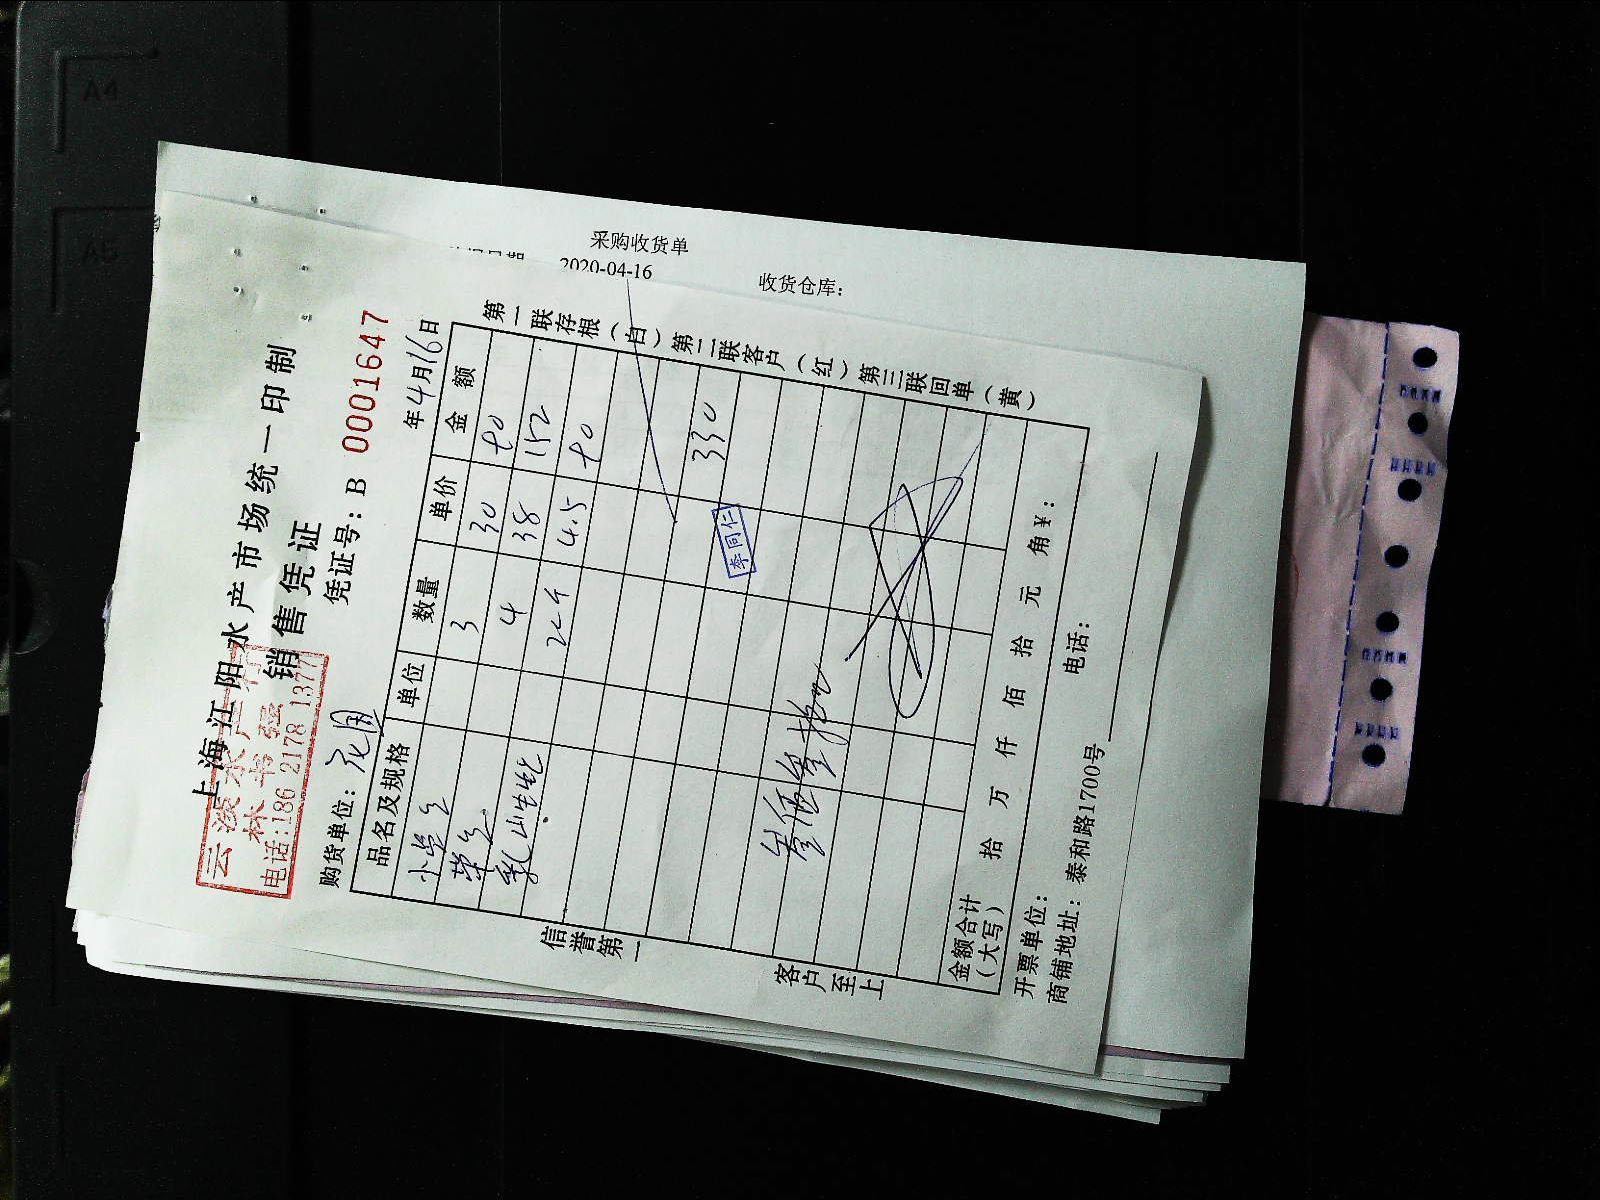 A4
A5
采购收货单
2020-04-16
收货仓库:
上海江阳水产市场统一印制
销售凭证
凭证号: B 0001647
林书强
电话:186 2178 1377
购货单位: 花园
年4月16日
品名及规格 单位 数量 单价 金额
3 30 90
4 38 152
4.5 90
乳山生蚝
330
李同仁
金额合计(大写) 拾 万 仟 佰 拾 元 角¥:
开票单位: 电话:
商铺地址: 泰和路1700号
第一联存根(白) 第二联客户(红) 第三联回单(黄)
信誉第一
客户至上